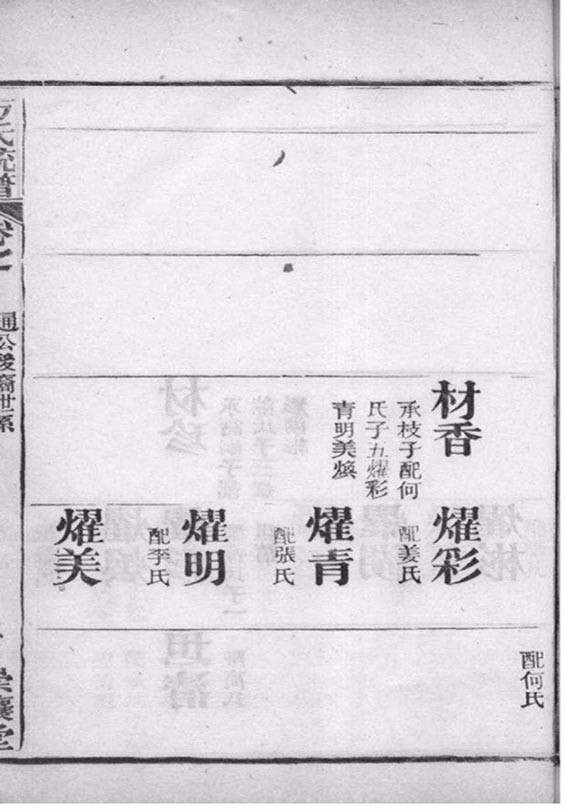 材香
承枝子配何
氏子五燿彩
青明美煥
燿彩
配姜氏
燿青
配張氏
燿明
配李氏
燿美
配何氏
氏統譜
通公後裔世系